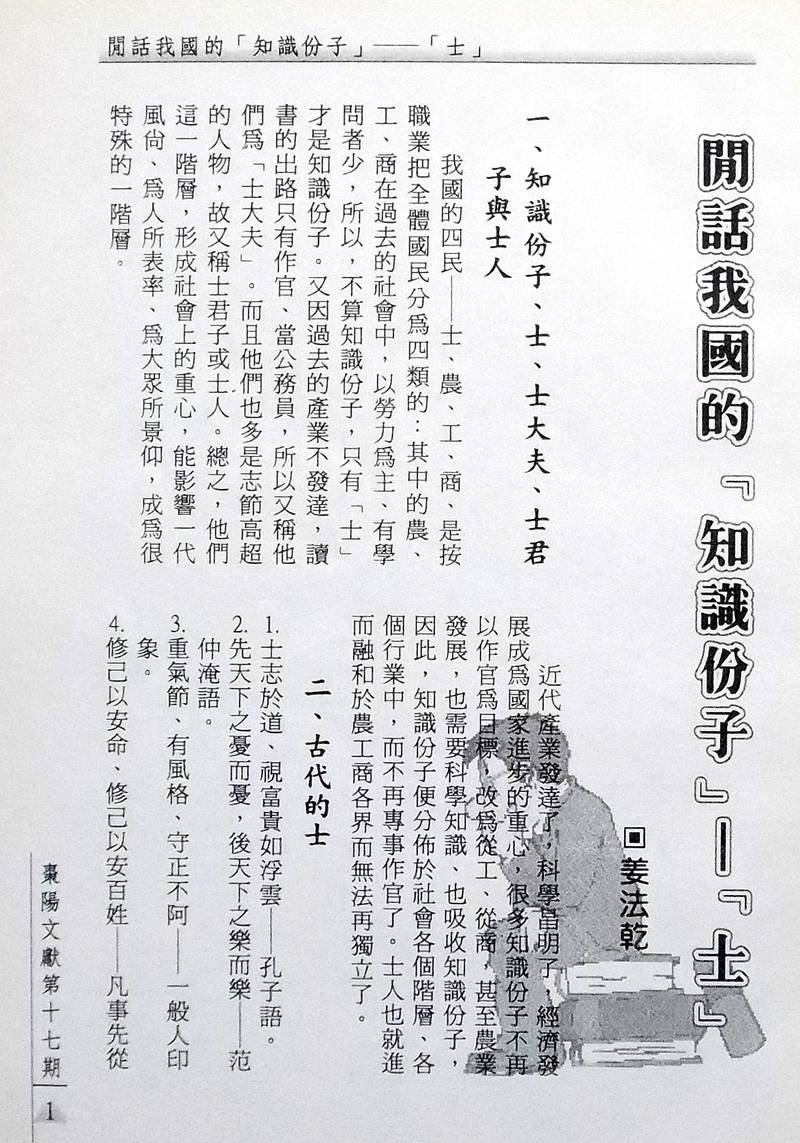 閒話我國的「知識份子」——「士」
閒話我國的『知識份子』—『士』
▣ 姜法乾
一、知識份子、士、士大夫、士君
子與士人
我國的四民——士、農、工、商、是按
職業把全體國民分為四類的︰其中的農、
工、商在過去的社會中，以勞力為主、有學
問者少，所以，不算知識份子，只有「士」
才是知識份子。又因過去的產業不發達，讀
書的出路只有作官、當公務員，所以又稱他
們為「士大夫」。而且他們也多是志節高超
的人物，故又稱士君子或士人。總之，他們
這一階層，形成社會上的重心，能影響一代
風尚、為人所表率、為大眾所景仰，成為很
特殊的一階層。
近代產業發達了，科學昌明了，經濟發
展成為國家進步的重心，很多知識份子不再
以作官為目標，改為從工、從商，甚至農業
發展，也需要科學知識、也吸收知識份子，
因此，知識份子便分佈於社會各個階層、各
個行業中，而不再專事作官了。士人也就進
而融和於農工商各界而無法再獨立了。
二、古代的士
1.士志於道、視富貴如浮雲——孔子語。
2.先天下之憂而憂，後天下之樂而樂——范
仲淹語。
3.重氣節、有風格、守正不阿——一般人印
象。
4.修己以安命、修己以安百姓——凡事先從
棗陽文獻第十七期
1